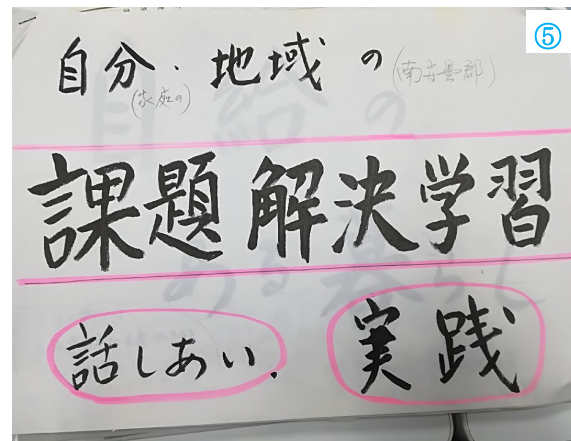 ⑤
自分・地域の(南安曇郡)
(家庭の)
課題解決学習
話しあい、実践